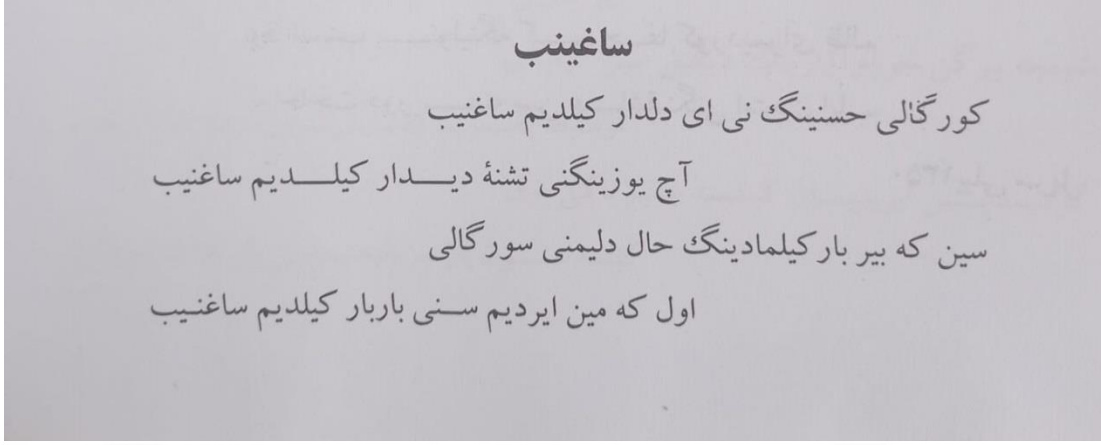 ساغینب
کور گالی حسنینگ نی ای دلدار کیلدیم ساغنیب
آچ یوزینگنی تشنۀ دیـــدار کیلـــدیم ساغنیب
سین که بیر بار کیلمادینگ حال دلیمنی سور گالی
اول که مین ایردیم ســنی باربار کیلدیم ساغنـیب